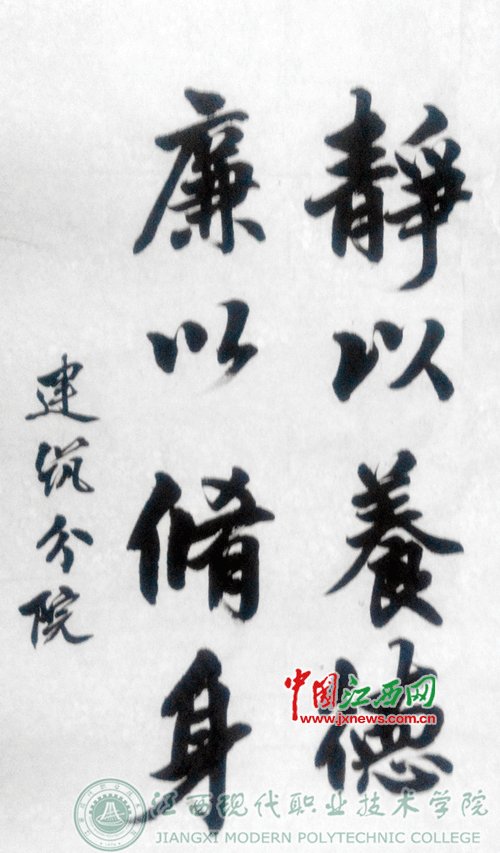 靜以養德
廉以脩身
建筑分院
中国江西网
www.jxnews.com.cn
江西现代职业技术学院
JIANGXI MODERN POLYTECHNIC COLLEGE